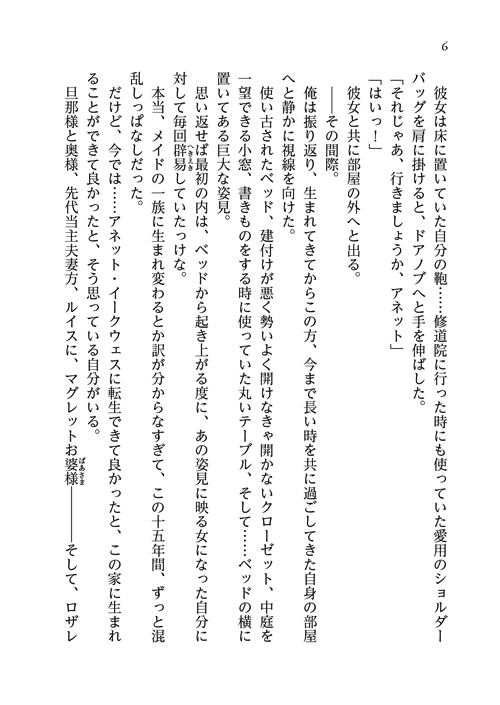 6
彼女は床に置いていた自分の鞄……修道院に行った時にも使っていた愛用のショルダー
バッグを肩に掛けると、ドアノブへと手を伸ばした。
「それじゃあ、行きましょうか、アネット」
「はいっ！」
彼女と共に部屋の外へと出る。
――その間際。
俺は振り返り、生まれてきてからこの方、今まで長い時を共に過ごしてきた自身の部屋
へと静かに視線を向けた。
使い古されたベッド、建付けが悪く勢いよく開けなきゃ開かないクローゼット、中庭を
一望できる小窓、書きものをする時に使っていた丸いテーブル、そして……ベッドの横に
置いてある巨大な姿見。
思い返せば最初の内は、ベッドから起き上がる度に、あの姿見に映る女になった自分に
対して毎回辟易へきえきしていたっけな。
本当、メイドの一族に生まれ変わるとか訳が分からなすぎて、この十五年間、ずっと混
乱しっぱなしだった。
だけど、今では……アネット・イークウェスに転生できて良かったと、この家に生まれ
ることができて良かったと、そう思っている自分がいる。
旦那様と奥様、先代当主夫妻方、ルイスに、マグレットお婆様ばあさま――――そして、ロザレ